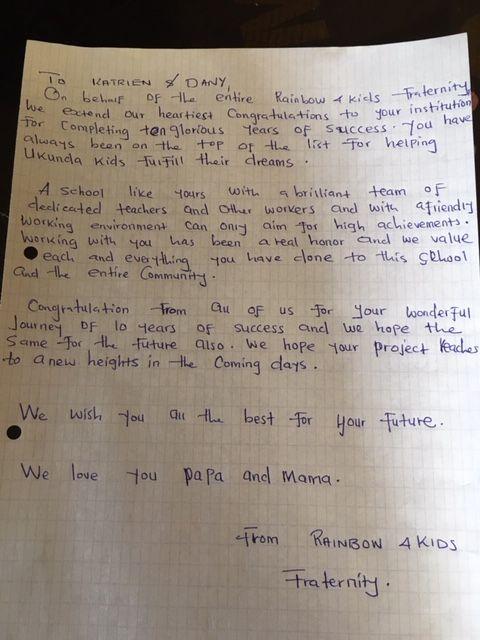 To KATRIEN & DANY,
On behalf of the entire Rainbow 4 kids Fraternity
We extend our heartiest Congratulations to your institution
for completing ten glorious years of success. You have
always been on the top of the list for helping
Ukunda kids fulfill their dreams.
A school like yours with a brilliant team of
dedicated teachers and other workers and with a friendly
working environment can only aim for high achievements.
Working with you has been a real honor and we value
each and everything you have done to this school
and the entire Community.
Congratulation from all of us for your wonderful
Journey of 10 years of success and we hope the
same for the future also. We hope your project reaches
to a new heights in the coming days.
We wish you all the best for your future.
We love you papa and Mama.
From RAINBOW 4 KIDS
Fraternity.